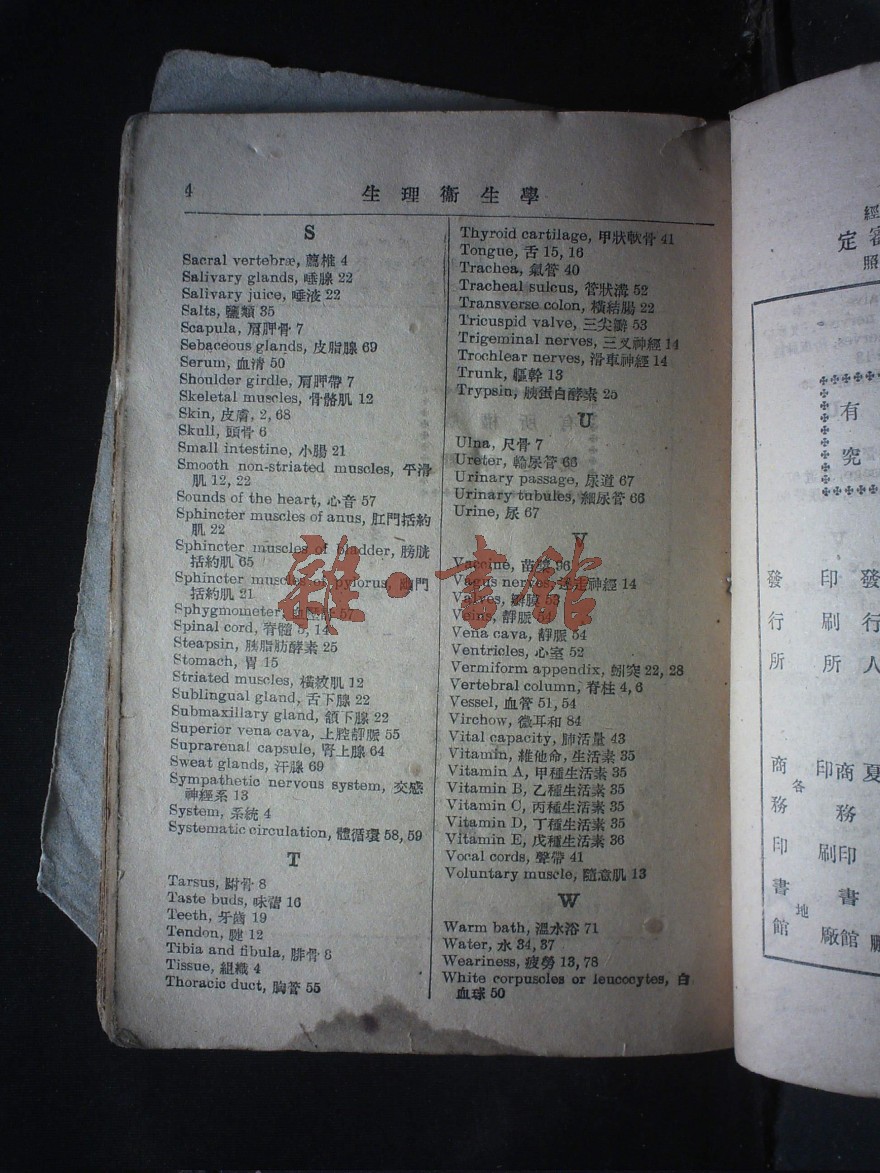 4
生理衞生學
S
Sacral vertebræ, 薦椎 4
Salivary glands, 唾腺 22
Salivary juice, 唾液 22
Salts, 鹽類 35
Scapula, 肩胛骨 7
Sebaceous glands, 皮脂腺 69
Serum, 血清 50
Shoulder girdle, 肩胛帶 7
Skeletal muscles, 骨骼肌 12
Skin, 皮膚, 2, 68
Skull, 頭骨 6
Small intestine, 小腸 21
Smooth non-striated muscles, 平滑
肌 12, 22
Sounds of the heart, 心音 57
Sphincter muscles of anus, 肛門括約
肌 22
Sphincter muscles of bladder, 膀胱
括約肌 65
Sphincter muscles of pylorus, 幽門
括約肌 21
Sphygmometer, 57
Spinal cord, 脊髓 14
Steapsin, 胰脂肪酵素 25
Stomach, 胃 15
Striated muscles, 橫紋肌 12
Sublingual gland, 舌下腺 22
Submaxillary gland, 頷下腺 22
Superior vena cava, 上腔靜脈 55
Suprarenal capsule, 腎上腺 64
Sweat glands, 汗腺 69
Sympathetic nervous system, 交感
神經系 13
System, 系統 4
Systematic circulation, 體循環 58, 59
T
Tarsus, 跗骨 8
Taste buds, 味蕾 16
Teeth, 牙齒 19
Tendon, 腱 12
Tibia and fibula, 腓骨 8
Tissue, 組織 4
Thoracic duct, 胸管 55
Thyroid cartilage, 甲狀軟骨 41
Tongue, 舌 15, 16
Trachea, 氣管 40
Tracheal sulcus, 管狀溝 52
Transverse colon, 橫結腸 22
Tricuspid valve, 三尖瓣 53
Trigeminal nerves, 三叉神經 14
Trochlear nerves, 滑車神經 14
Trunk, 軀幹 13
Trypsin, 胰蛋白酵素 25
U
Ulna, 尺骨 7
Ureter, 輸尿管 66
Urinary passage, 尿道 67
Urinary tubules, 細尿管 66
Urine, 尿 67
V
Vaccine, 苗漿 96
Vagus nerves, 迷走神經 14
Valves, 瓣膜 53
Veins, 靜脈 51
Vena cava, 靜脈 54
Ventricles, 心室 52
Vermiform appendix, 蚓突 22, 28
Vertebral column, 脊柱 4, 6
Vessel, 血管 51, 54
Virchow, 微耳和 84
Vital capacity, 肺活量 43
Vitamin, 維他命, 生活素 35
Vitamin A, 甲種生活素 35
Vitamin B, 乙種生活素 35
Vitamin C, 丙種生活素 35
Vitamin D, 丁種生活素 35
Vitamin E, 戊種生活素 36
Vocal cords, 聲帶 41
Voluntary muscle, 隨意肌 13
W
Warm bath, 溫水浴 71
Water, 水 34, 37
Weariness, 疲勞 13, 78
White corpuscles or leucocytes, 白
血球 50
雜·書館
經
審定
照
有
究
發人 夏
印刷所 商務印書館
發行所 商務印書館
各地